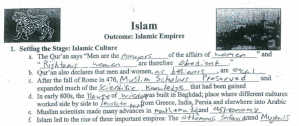 Islam
Outcome: Islamic Empires
1. Setting the Stage: Islamic Culture
a. The Qur'an says "Men are the managers of the affairs of women" and
"Righteous women are therefore obedient"
b. Qur'an also declares that men and women, as believers, are equal
c. After the fall of Rome in 476, Muslim Scholars Preserved and
expanded much of the Scientific Knowledge that had been gained
d. In early 800s, the House of Wisdom was built in Baghdad; place where different cultures
worked side by side to translate texts from Greece, India, Persia and elsewhere into Arabic
e. Muslim scientists made many advances in and astronomy
f. Islam led to the rise of three important empires: The Ottomans, Safavid and Mughals